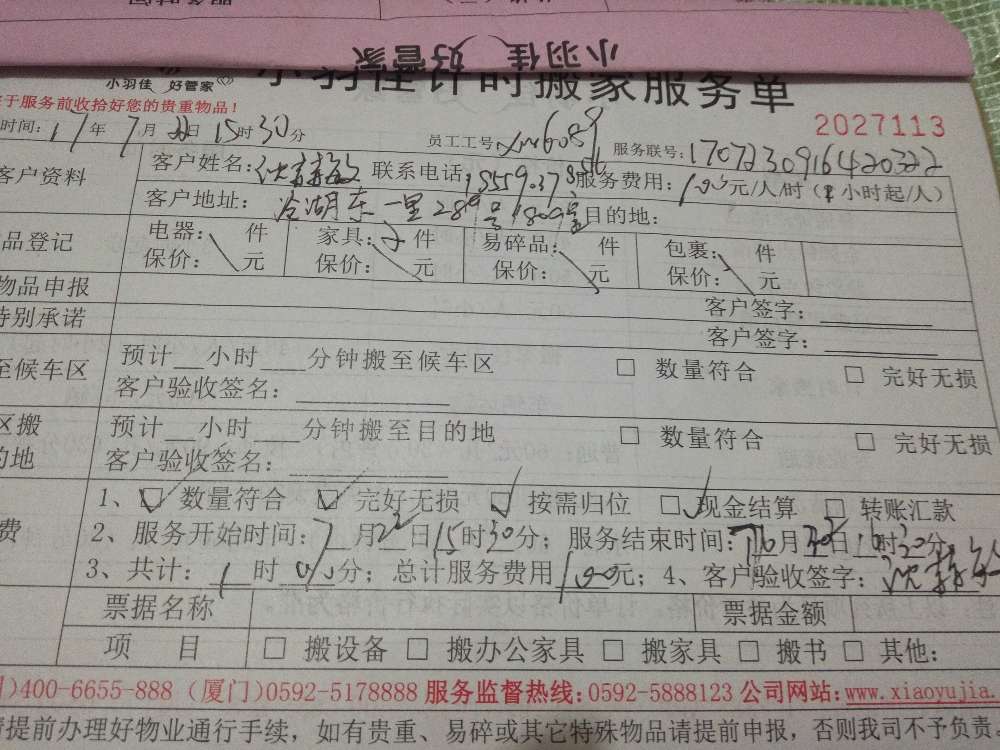 小羽佳 好管家
小羽佳 好管家
小羽佳计时搬家服务单
于服务前收拾好您的贵重物品!
2027113
时间: 17年7月22日15时30分 员工工号 服务联号: 1707230916420322
客户资料 客户姓名: 联系电话: 服务费用: 100元/人/时 (1小时起/人)
客户地址: 冷湖东一里289号1809室 目的地:
品登记 电器: 件 家具: 件 易碎品: 件 包裹: 件
保价: 元 保价: 元 保价: 元 保价: 元
物品申报 客户签字:
特别承诺 客户签字:
至候车区 预计 小时 分钟搬至候车区 □ 数量符合 □ 完好无损
客户验收签名:
区搬 预计 小时 分钟搬至目的地 □ 数量符合 □ 完好无损
的地 客户验收签名:
费 1、☑ 数量符合 ☑ 完好无损 ☑ 按需归位 ☑ 现金结算 □ 转账汇款
2、服务开始时间: 7月22日15时30分; 服务结束时间: 月 日16时30分
3、共计: 1时 分; 总计服务费用100元; 4、客户验收签字:
票据名称 票据金额
项 目 □ 搬设备 □ 搬办公家具 □ 搬家具 □ 搬书 □ 其他:
)400-6655-888 (厦门)0592-5178888 服务监督热线: 0592-5888123 公司网站: www.xiaoyujia.
请提前办理好物业通行手续，如有贵重、易碎或其它特殊物品请提前申报，否则我司不予负责